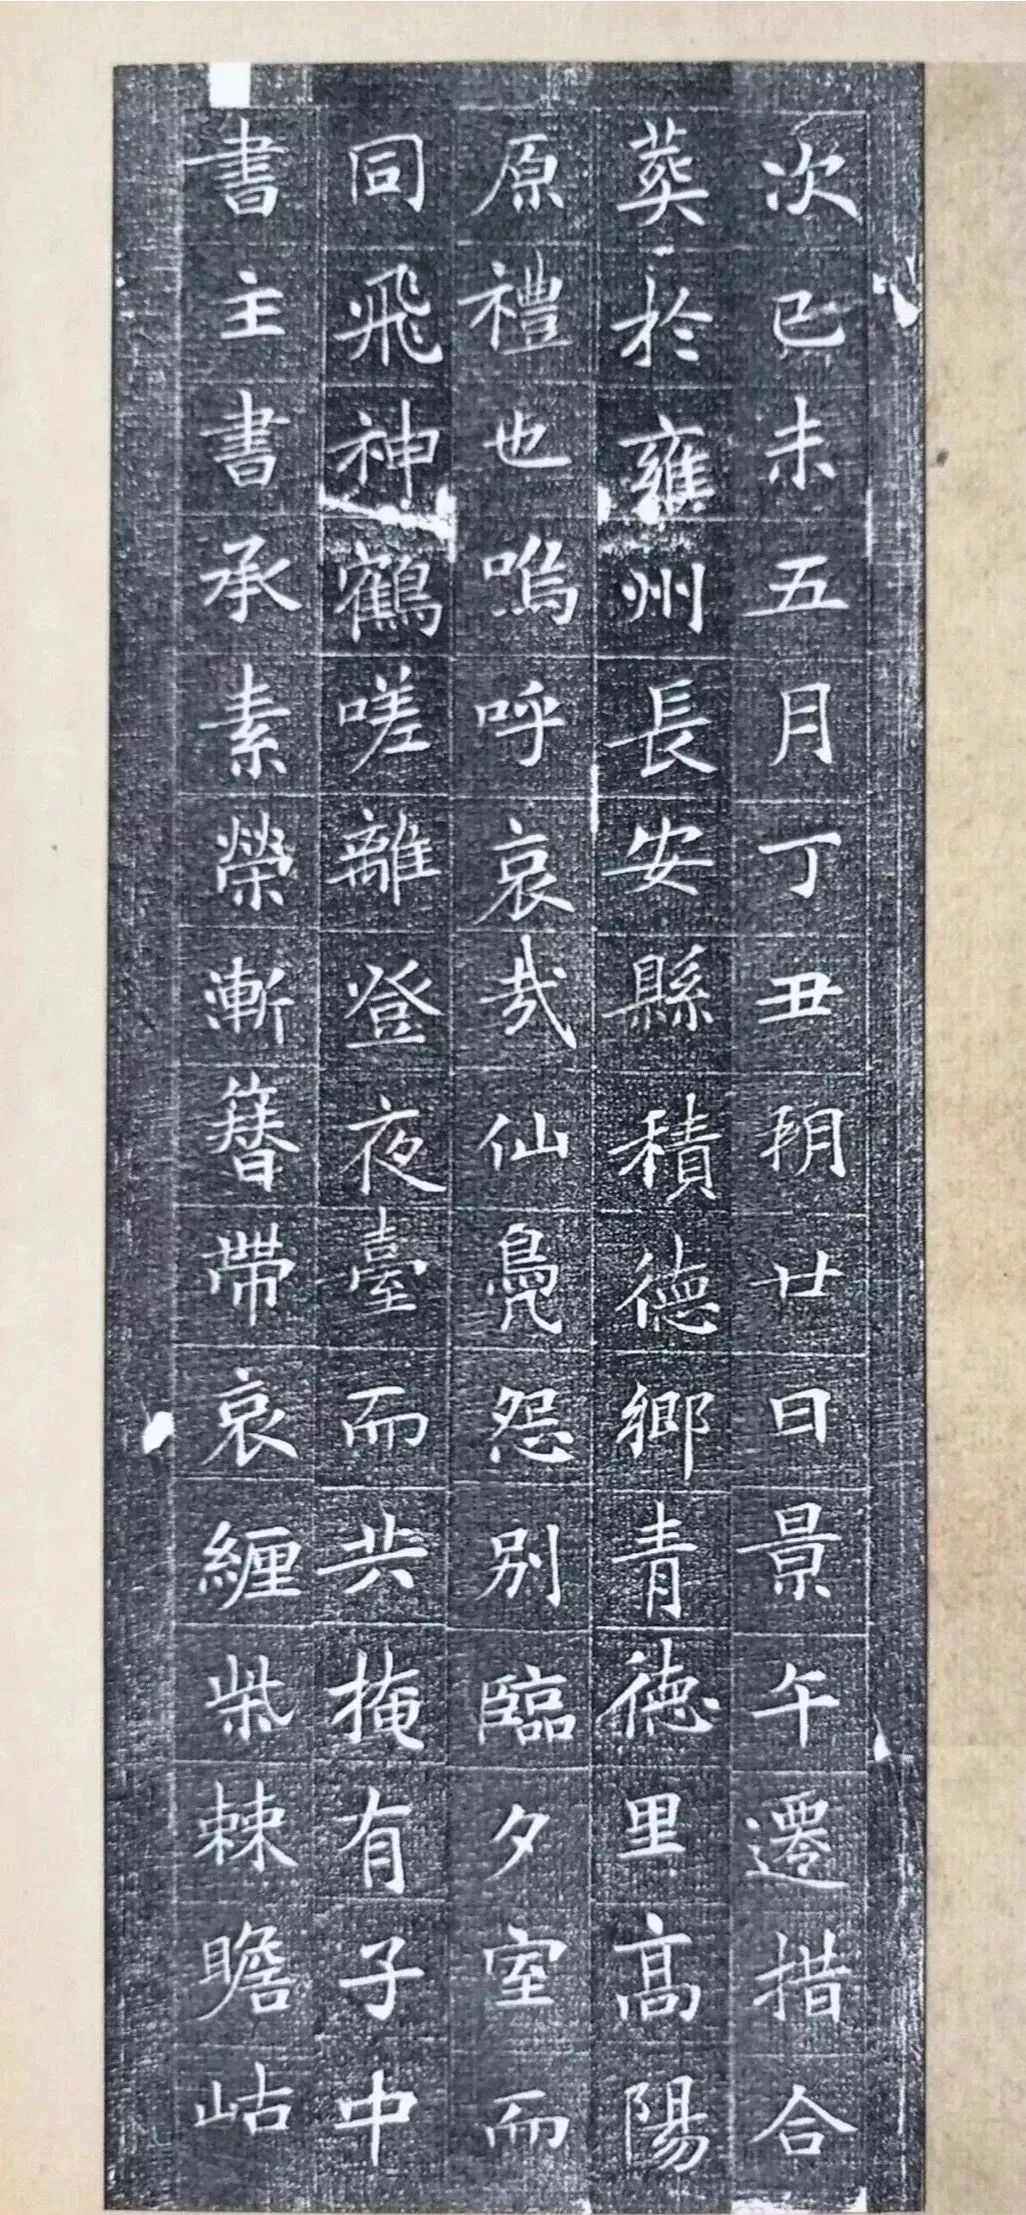 次已未五月丁丑朔廿日景午遷措合
葬於雍州長安縣積德鄉青德里高陽
原禮也嗚呼哀哉仙鳧怨別臨夕室而
同飛神鶴嗟離登夜臺而共掩有子中
書主書承素榮漸簪帶哀纏柴棘瞻岵